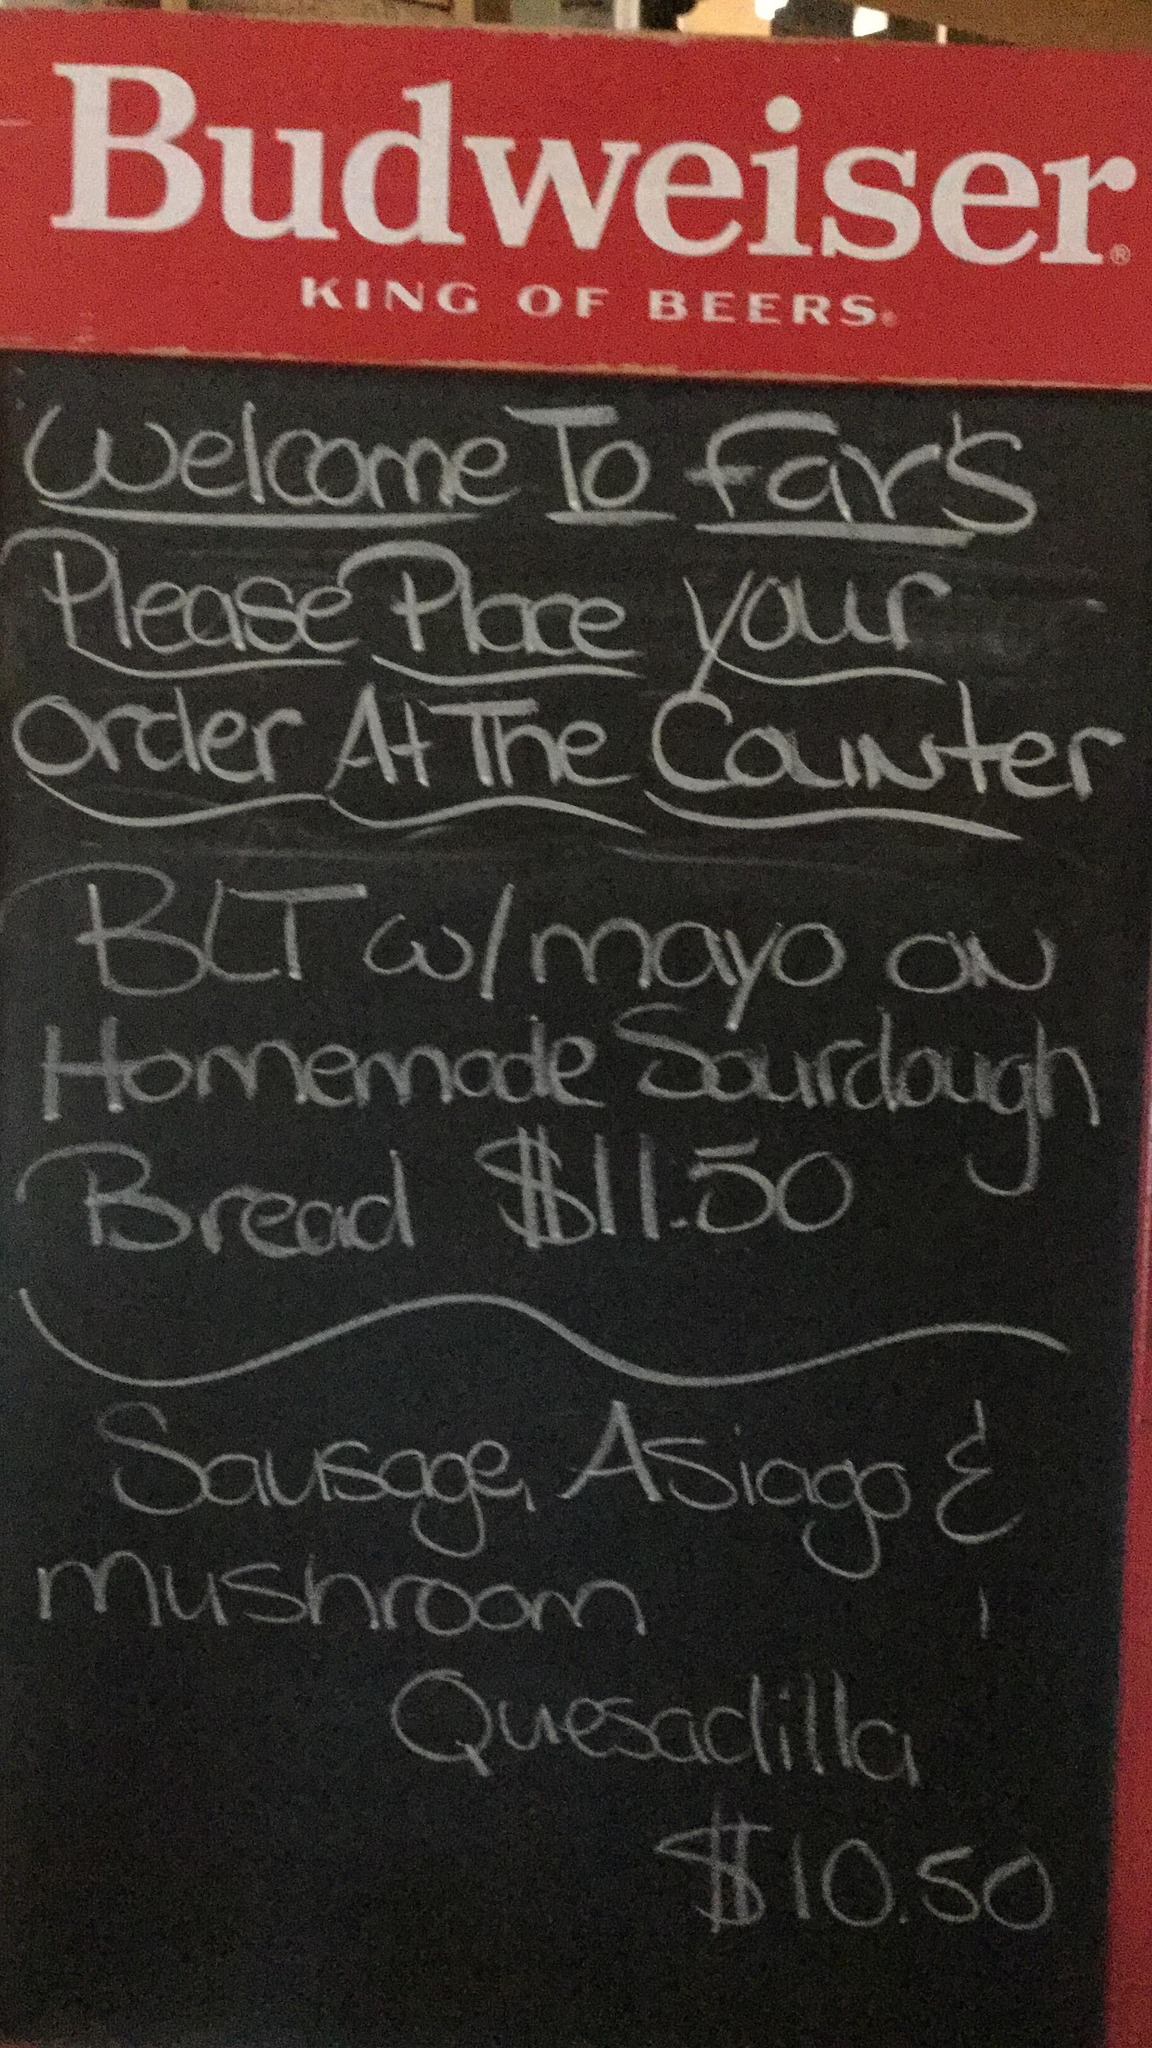 Budweiser®
KING OF BEERS®
Welcome To Far's
Please Place your
Order At The Counter
BLT w/mayo on
Homemade Sourdough
Bread $11.50
Sausage, Asiago &
mushroom
Quesadilla
$10.50